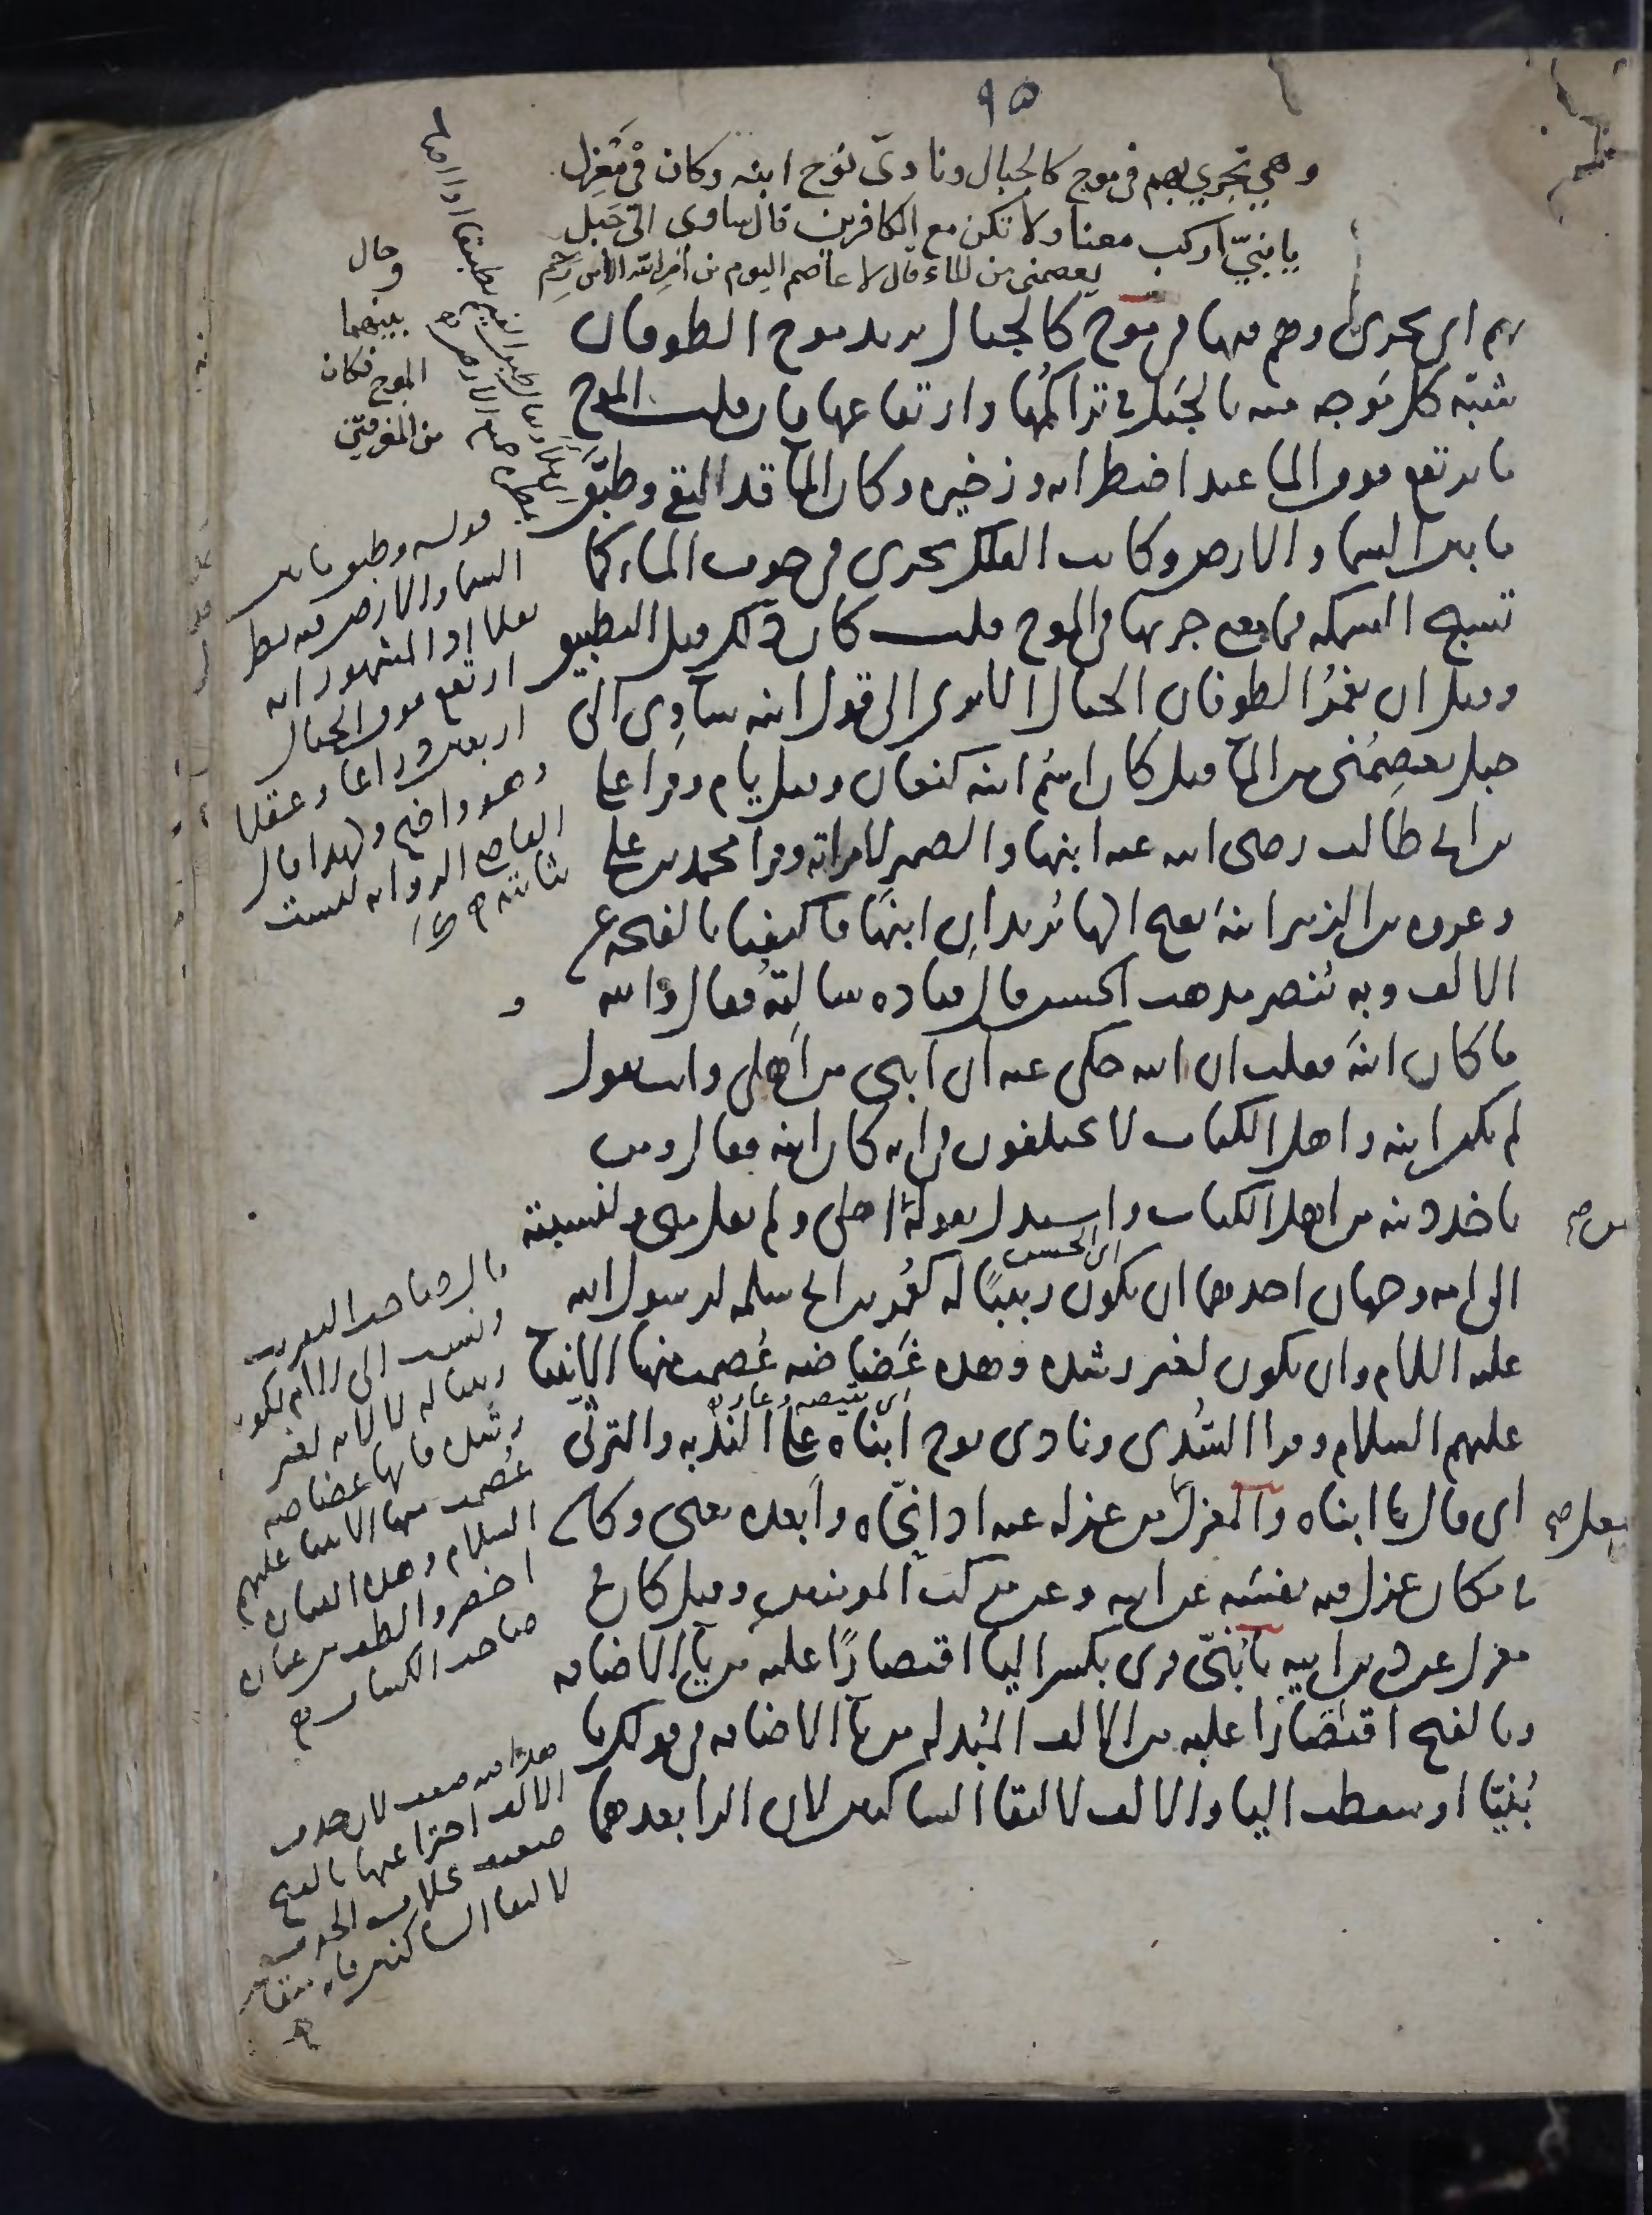 ٩٥
وهي تجري بهم في موج كالجبال ونادى نوح ابنه وكان في معزل
يا بنيّ اركب معنا ولا تكن مع الكافرين قال ساوى الى جبل
يعصمني من الماء قال لا عاصم اليوم من امر الله الا من رحم
وحال
بينهما
الموج فكان
من المغرقين
بهم اى تجرى وهم فيها في موج كالجبال يريد موج الطوفان
شبّه كل موجه منه بالجبل في تراكمها وارتفاعها فان قلت الموج
ما يرتفع فوق الما عند اضطرابه وزخيره وكان الما قد التقى وطبّق
ما بين السما والارض وكانت الفلك تجرى في جوف الماء كما
تسبح السمكه فما معنى جريها في الموج قلت كان ذلك قبل التطبيق
وقبل ان يغمر الطوفان الجبال الا ترى الى قول ابنه ساوي الى
جبل يعصمني من الما قيل كان اسم ابنه كنعان وقيل يام وقرا علي
بن ابي طالب رضى الله عنه ابنها والضمير لامراته وقرا محمد بن علي
وعروه بن الزبير ابنه بفتح الها يريدان ابنها فاكتفيا بالفتحه عن
الالف وبه ينصر مذهب الحسن قال قتاده سالته فقال والله
ما كان ابنه فقلت ان الله حكى عنه ان ابنى من اهلى وانت تقول
لم يكن ابنه واهل الكتاب لا يختلفون في انه كان ابنه فقال ومن
ياخذ دينه من اهل الكتاب واستدل بقوله من اهلى ولم يقل منى ولنسبته
الى امه وجهان احدهما ان يكون ربيبًا له كعمر بن ابي سلمه لرسول الله
اى الحسن
عليه السلام وان يكون لغير رشده وهذه غضاضه عُصمت منها الانبيا
عليهم السلام وقرا السُدى ونادى نوح ابناه على الندبه والترثى
اى نقيصه وعار
اى قال يا ابناه والمعزل من عزله عنه اذا نحّاه وابعده يعنى وكان
في مكان عزل فيه نفسه عن ابيه وعن مركب المومنين وقيل كان في
معزل عن دين ابيه يا بُنيّ قرى بكسر اليا اقتصارًا عليه من يا الاضافه
وبالفتح اقتصارًا عليه من الالف المبدله من يا الاضافه في قولك يا
بُنيّا او سقطت اليا والالف لالتقا الساكنين لان الرا بعدهما
قوله وطبق ما بين
السما والارض فيه نظر
نقلا اذ المشهور انه
ارتفع فوق الجبال
اربعين ذراعا وعقلا
وهو واضح ولهذا قال
القاضى الروايه ليست
ثابته
قال صاحب التقريب
ونسب الى الام لكونه
ربيبا له لا لانه لغير
رشده فانها غضاضه
عُصمت منها الانبيا عليهم
السلام وهذه العباره
اخصر والطف من عباره
صاحب الكشاف
هذا فيه ضعف لان حذف
الالف اجتزا عنها بالفتح
ضعيف بخلاف الحذف
لالتقا الساكنين فانه